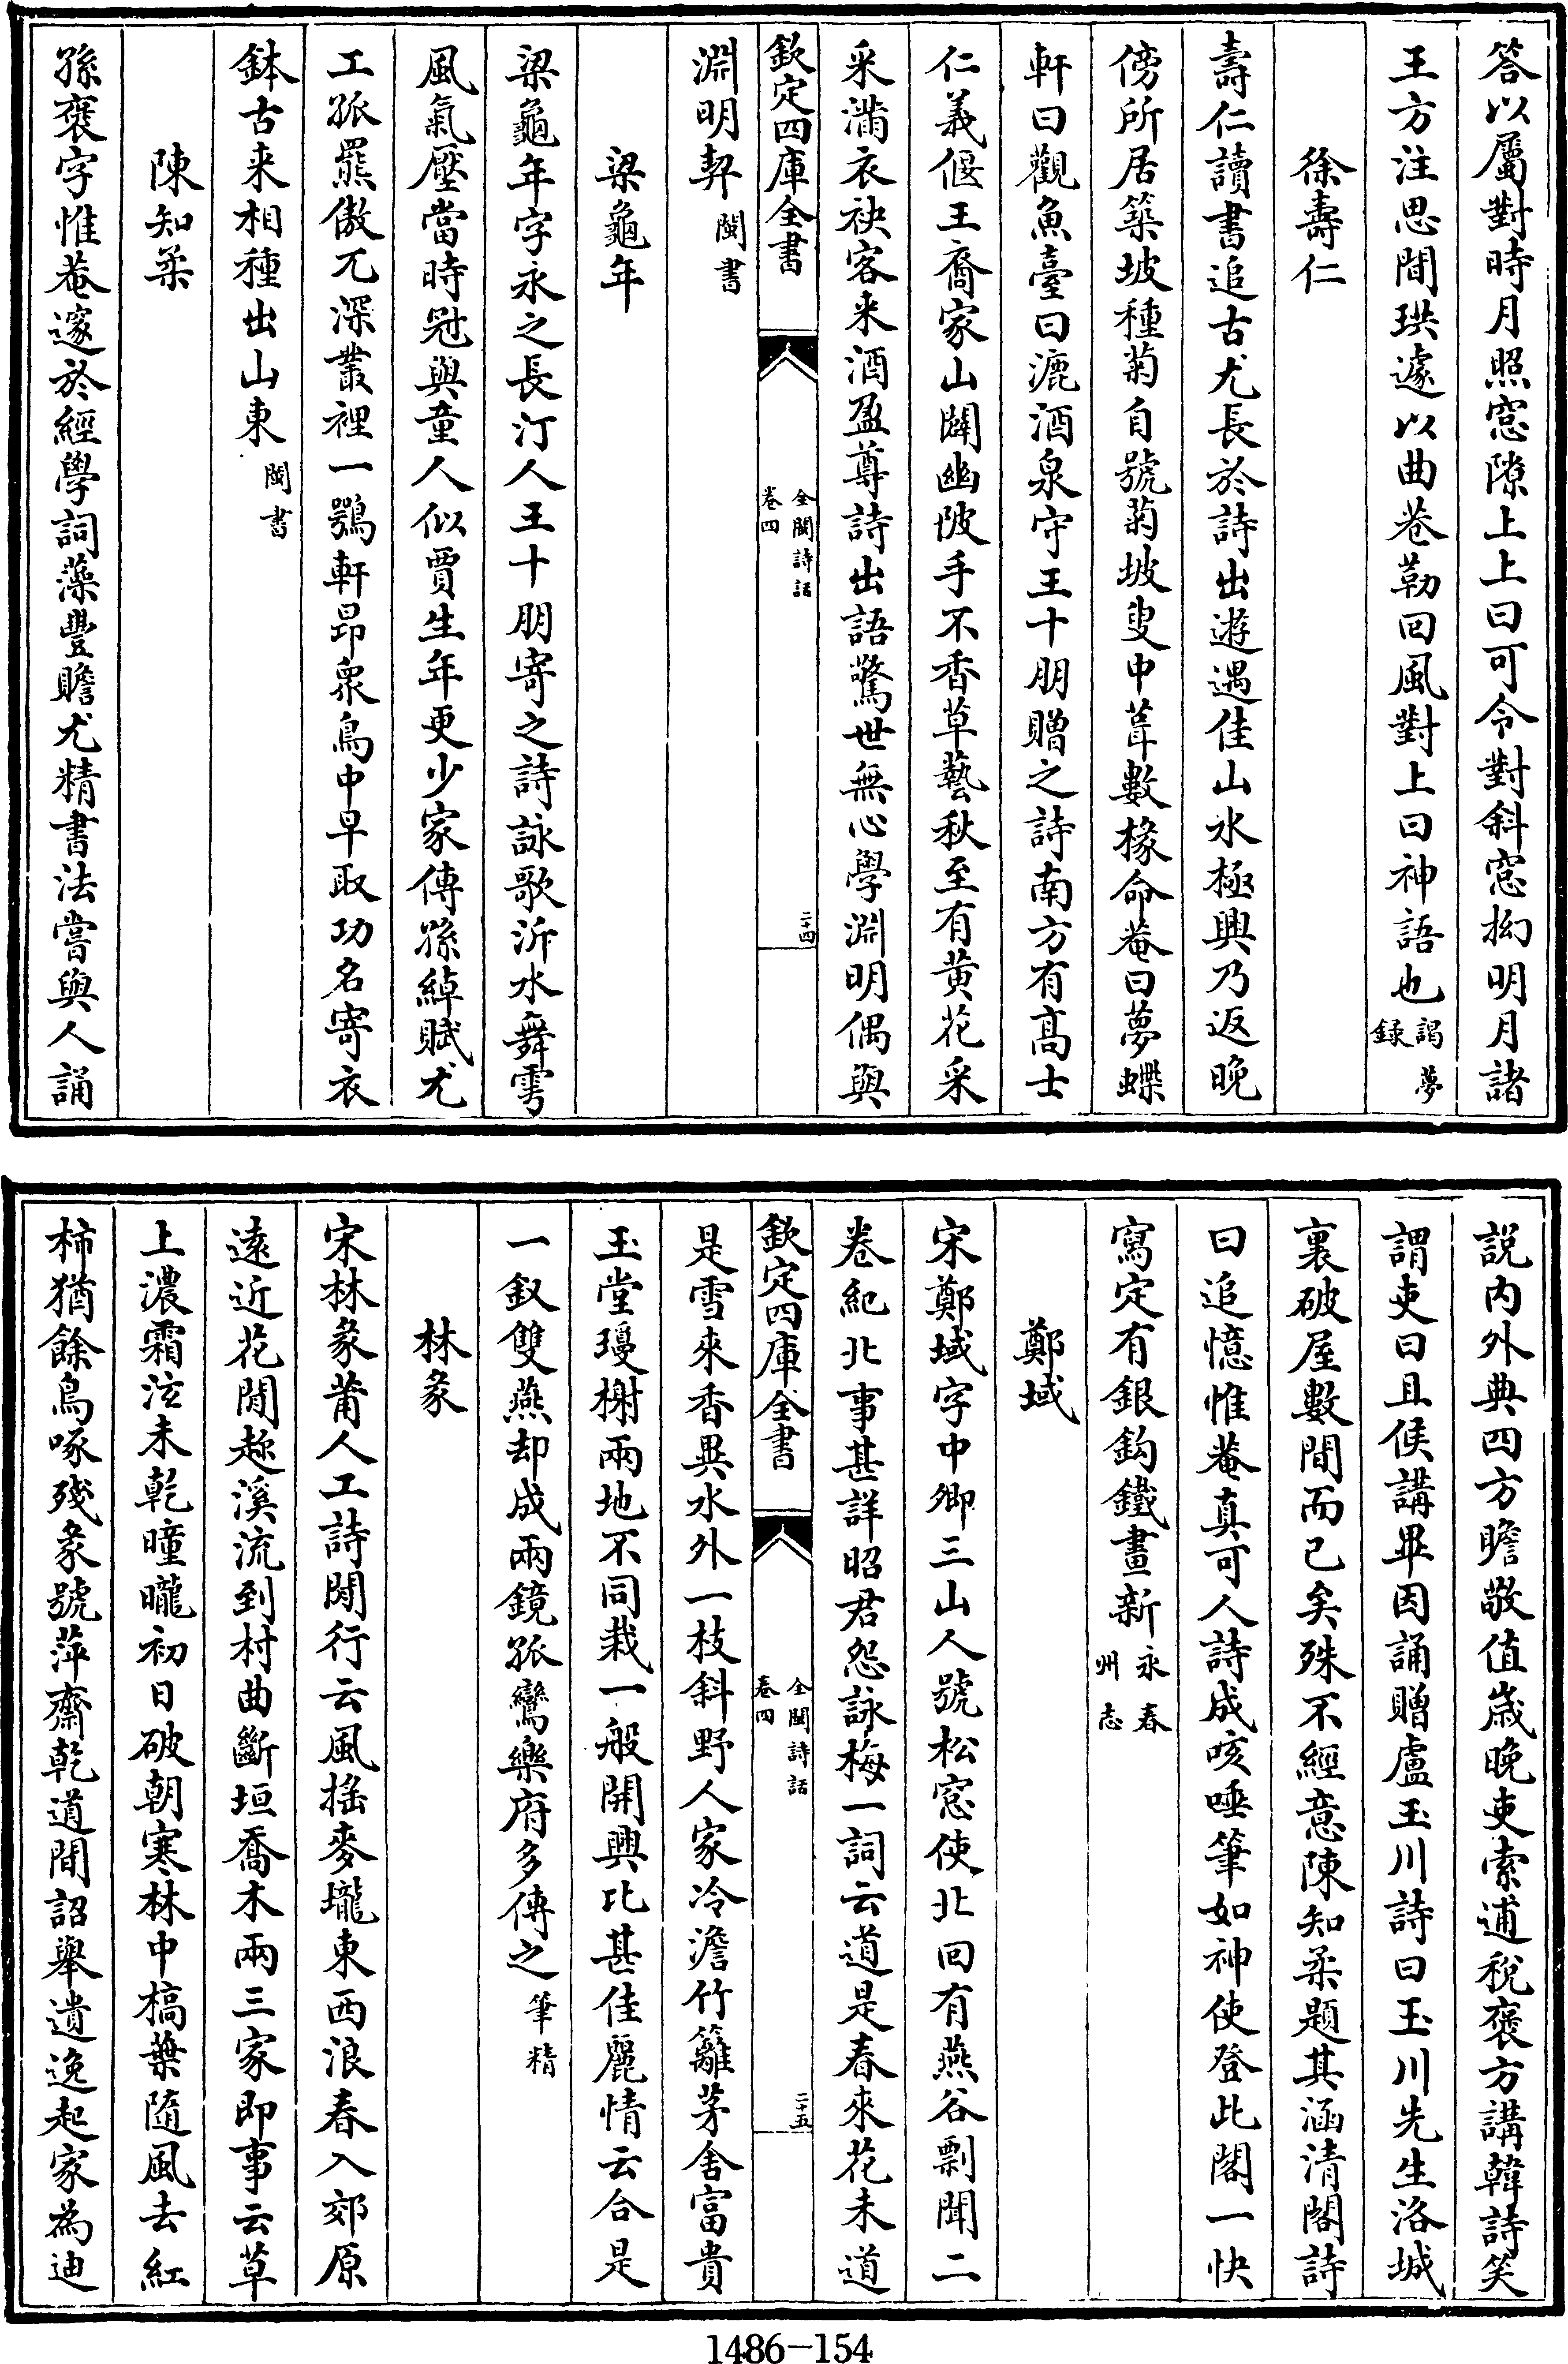 答以屬對時月照窓隙上上曰可令對斜窓拗明月諸
王方注思間珙遽以曲巷勒回風對上曰神語也謁夢
録
徐壽仁
壽仁讀書追古尤長於詩出遊遇佳山水極興乃返晚
傍所居築坡種菊自號菊坡叟中葺數椽命菴曰夢蝶
軒曰觀魚臺曰漉酒泉守王十朋贈之詩南方有髙士
仁義偃王裔家山闢幽陂手不香草藝秋至有黄花采
采滿衣袂客來酒盈尊詩出語驚世無心學淵明偶與
欽定四庫全書
全閩詩話
卷四
二十四
淵明契閩書
梁龜年
梁龜年字永之長汀人王十朋寄之詩詠歌沂水舞雩
風氣壓當時冠與童人似賈生年更少家傳孫綽賦尤
工孤羆傲兀深叢裡一鶚軒昂衆鳥中早取功名寄衣
鉢古来相種出山東閩書
陳知柔
孫裒字惟菴邃於經學詞藻豐贍尤精書法嘗與人誦
説内外典四方瞻敬值嵗晚吏索逋稅裒方講韓詩笑
謂吏曰且俟講畢因誦贈盧玉川詩曰玉川先生洛城
裏破屋數間而已矣殊不經意陳知柔題其涵清閣詩
曰追憶惟菴真可人詩成咳唾筆如神使登此閣一快
寫定有銀鈎鐵畫新永春
州志
鄭域
宋鄭域字中卿三山人號松窓使北回有燕谷剽聞二
卷紀北事甚詳昭君怨詠梅一詞云道是春來花未道
欽定四庫全書
全閩詩話
卷四
二十五
是雪來香異水外一枝斜野人家冷澹竹籬茅舍富貴
玉堂瓊榭兩地不同栽一般開興比甚佳麗情云合是
一釵雙燕却成兩鏡孤鸞樂府多傳之筆精
林彖
宋林彖莆人工詩閒行云風揺麥壠東西浪春入郊原
遠近花閒趂溪流到村曲斷垣喬木兩三家即事云草
上濃霜泫未乾曈曨初日破朝寒林中槁葉隨風去紅
柿猶餘鳥啄殘彖號萍齋乾道間詔舉遺逸起家為迪
1486-154